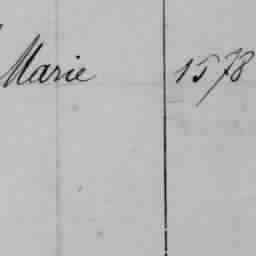 Marie 1578